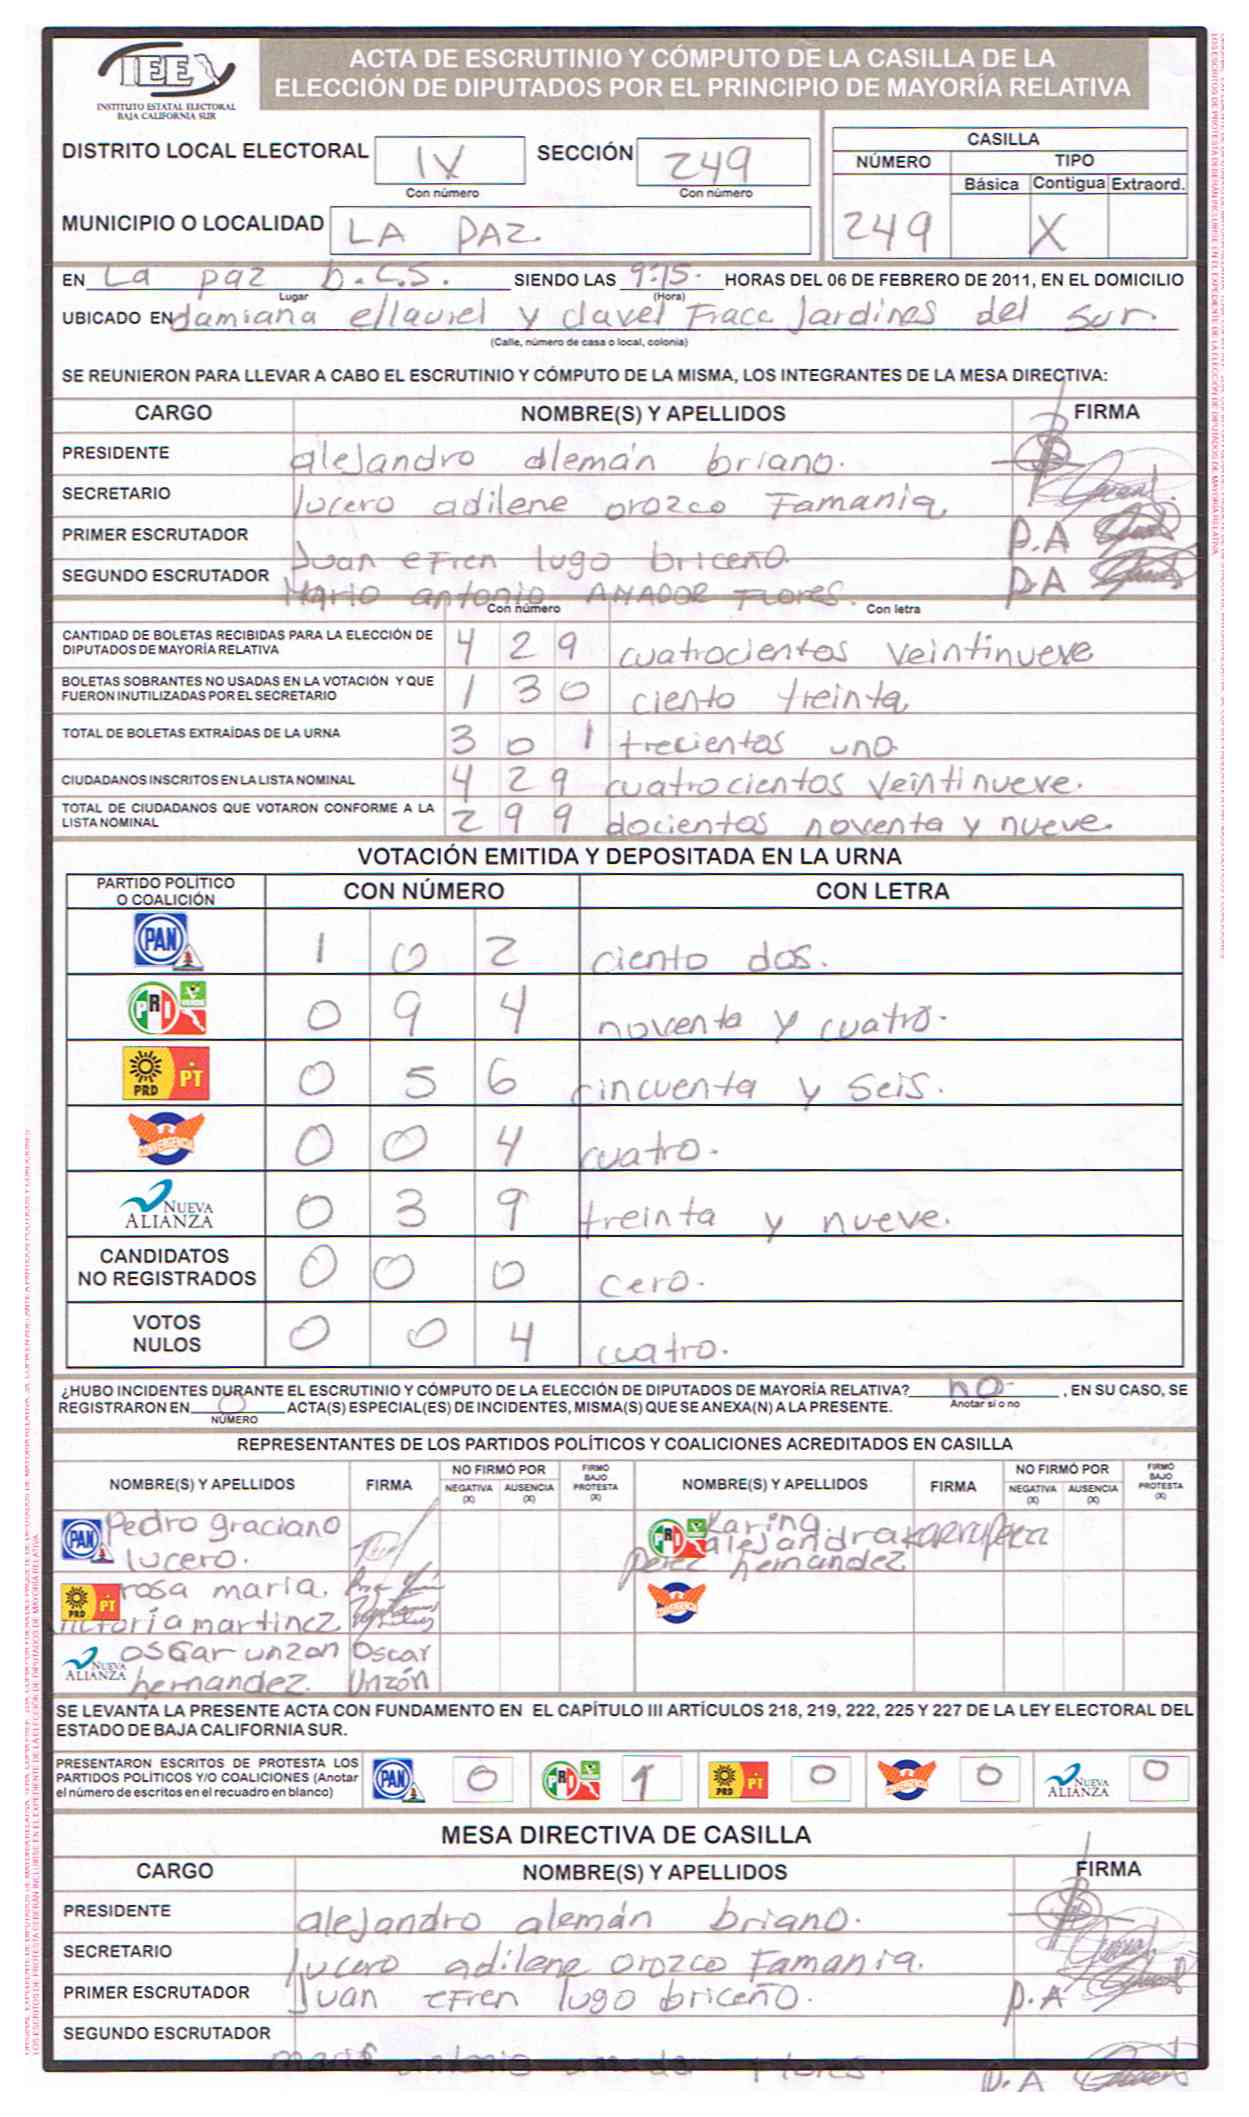 IEE
INSTITUTO ESTATAL ELECTORAL
BAJA CALIFORNIA SUR
ACTA DE ESCRUTINIO Y CÓMPUTO DE LA CASILLA DE LA
ELECCIÓN DE DIPUTADOS POR EL PRINCIPIO DE MAYORÍA RELATIVA
DISTRITO LOCAL ELECTORAL IX SECCIÓN 249
Con número Con número
MUNICIPIO O LOCALIDAD LA PAZ
CASILLA
NÚMERO TIPO
Básica Contigua Extraord.
249 X
EN La paz b.c.s. SIENDO LAS 9:15 HORAS DEL 06 DE FEBRERO DE 2011, EN EL DOMICILIO
Lugar (Hora)
UBICADO EN damiana ellauriel y clavel Fracc Jardines del Sur
(Calle, número de casa o local, colonia)
SE REUNIERON PARA LLEVAR A CABO EL ESCRUTINIO Y CÓMPUTO DE LA MISMA, LOS INTEGRANTES DE LA MESA DIRECTIVA:
CARGO NOMBRE(S) Y APELLIDOS FIRMA
PRESIDENTE alejandro alemán briano.
SECRETARIO lucero adilene orozco Famania
PRIMER ESCRUTADOR Juan eFren lugo briceño. P.A
SEGUNDO ESCRUTADOR Mario antonio AMADOR FLORES. P.A
Con número Con letra
CANTIDAD DE BOLETAS RECIBIDAS PARA LA ELECCIÓN DE
DIPUTADOS DE MAYORÍA RELATIVA 4 2 9 cuatrocientos veintinueve
BOLETAS SOBRANTES NO USADAS EN LA VOTACIÓN Y QUE
FUERON INUTILIZADAS POR EL SECRETARIO 1 3 0 ciento treinta,
TOTAL DE BOLETAS EXTRAÍDAS DE LA URNA 3 0 1 trecientos uno
CIUDADANOS INSCRITOS EN LA LISTA NOMINAL 4 2 9 cuatrocientos veintinueve.
TOTAL DE CIUDADANOS QUE VOTARON CONFORME A LA
LISTA NOMINAL 2 9 9 docientos noventa y nueve.
VOTACIÓN EMITIDA Y DEPOSITADA EN LA URNA
PARTIDO POLÍTICO
O COALICIÓN CON NÚMERO CON LETRA
PAN 1 0 2 ciento dos.
PRI VERDE 0 9 4 noventa y cuatro.
PRD PT 0 5 6 cincuenta y seis.
CONVERGENCIA 0 0 4 cuatro.
NUEVA ALIANZA 0 3 9 treinta y nueve.
CANDIDATOS
NO REGISTRADOS 0 0 0 cero.
VOTOS
NULOS 0 0 4 cuatro.
¿HUBO INCIDENTES DURANTE EL ESCRUTINIO Y CÓMPUTO DE LA ELECCIÓN DE DIPUTADOS DE MAYORÍA RELATIVA? no , EN SU CASO, SE
REGISTRARON EN 0 ACTA(S) ESPECIAL(ES) DE INCIDENTES, MISMA(S) QUE SE ANEXA(N) A LA PRESENTE. Anotar si o no
NÚMERO
REPRESENTANTES DE LOS PARTIDOS POLÍTICOS Y COALICIONES ACREDITADOS EN CASILLA
NOMBRE(S) Y APELLIDOS FIRMA NO FIRMÓ POR NEGATIVA (X) AUSENCIA (X) FIRMÓ BAJO PROTESTA (X) NOMBRE(S) Y APELLIDOS FIRMA NO FIRMÓ POR NEGATIVA (X) AUSENCIA (X) FIRMÓ BAJO PROTESTA (X)
PAN Pedro graciano lucero. PRI Karina alejandra perez hernandez
PRD PT rosa maria victoria martinez CONVERGENCIA
NUEVA ALIANZA oscar unzon hernandez. Oscar Unzón
SE LEVANTA LA PRESENTE ACTA CON FUNDAMENTO EN EL CAPÍTULO III ARTÍCULOS 218, 219, 222, 225 Y 227 DE LA LEY ELECTORAL DEL
ESTADO DE BAJA CALIFORNIA SUR.
PRESENTARON ESCRITOS DE PROTESTA LOS
PARTIDOS POLÍTICOS Y/O COALICIONES (Anotar
el número de escritos en el recuadro en blanco) PAN 0 PRI 1 PRD PT 0 CONVERGENCIA 0 NUEVA ALIANZA 0
MESA DIRECTIVA DE CASILLA
CARGO NOMBRE(S) Y APELLIDOS FIRMA
PRESIDENTE alejandro alemán briano.
SECRETARIO lucero adilene orozco Famania.
PRIMER ESCRUTADOR Juan eFren lugo briceño. P.A
SEGUNDO ESCRUTADOR
antonio Flores. P.A